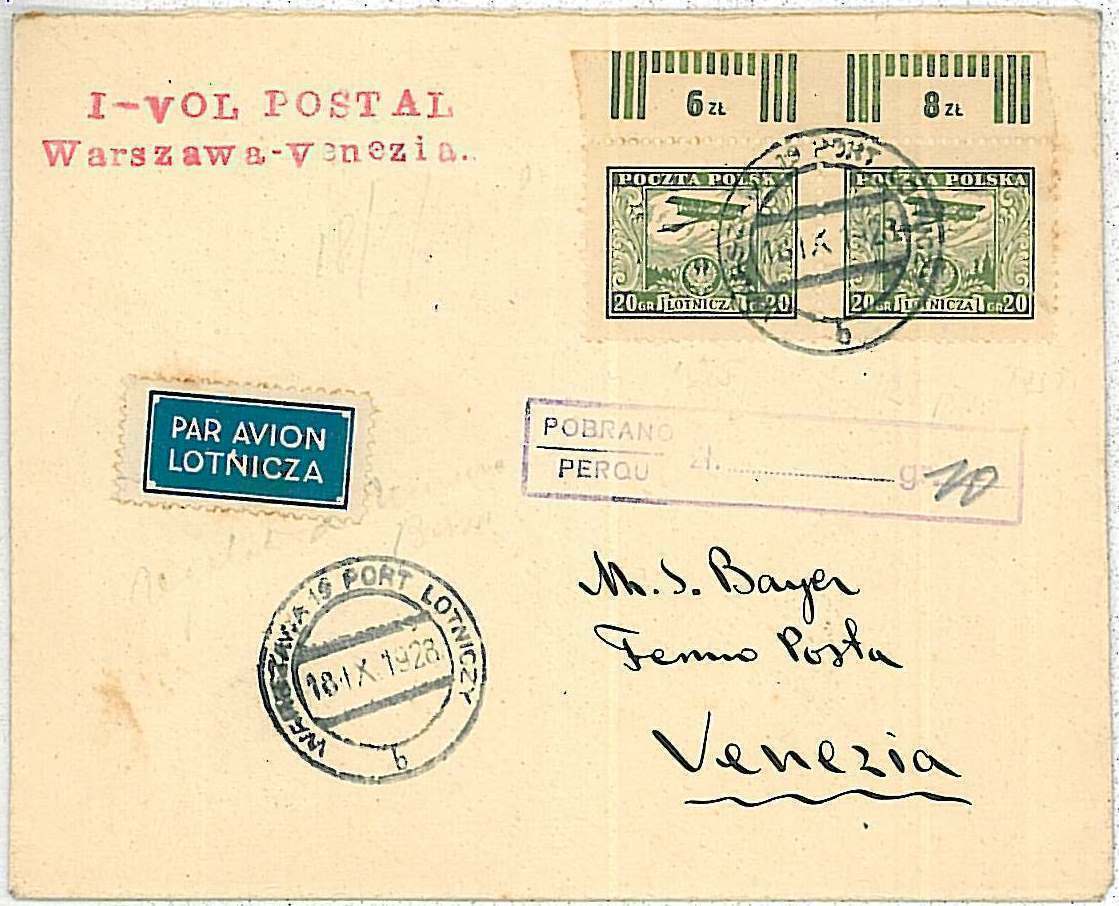 I-VOL POSTAL
Warszawa-Venezia.
6 ZŁ 8 ZŁ
POCZTA POLSKA
20 GR LOTNICZA GR 20
POCZTA POLSKA
20 GR LOTNICZA GR 20
19 PORT
18 IX 1928
b
PAR AVION
LOTNICZA
POBRANO
PERÇU zł. g 10
WARSZAWA 19 PORT LOTNICZY
18 IX. 1928
b
M. S. Bayer
Fermo Posta
Venezia